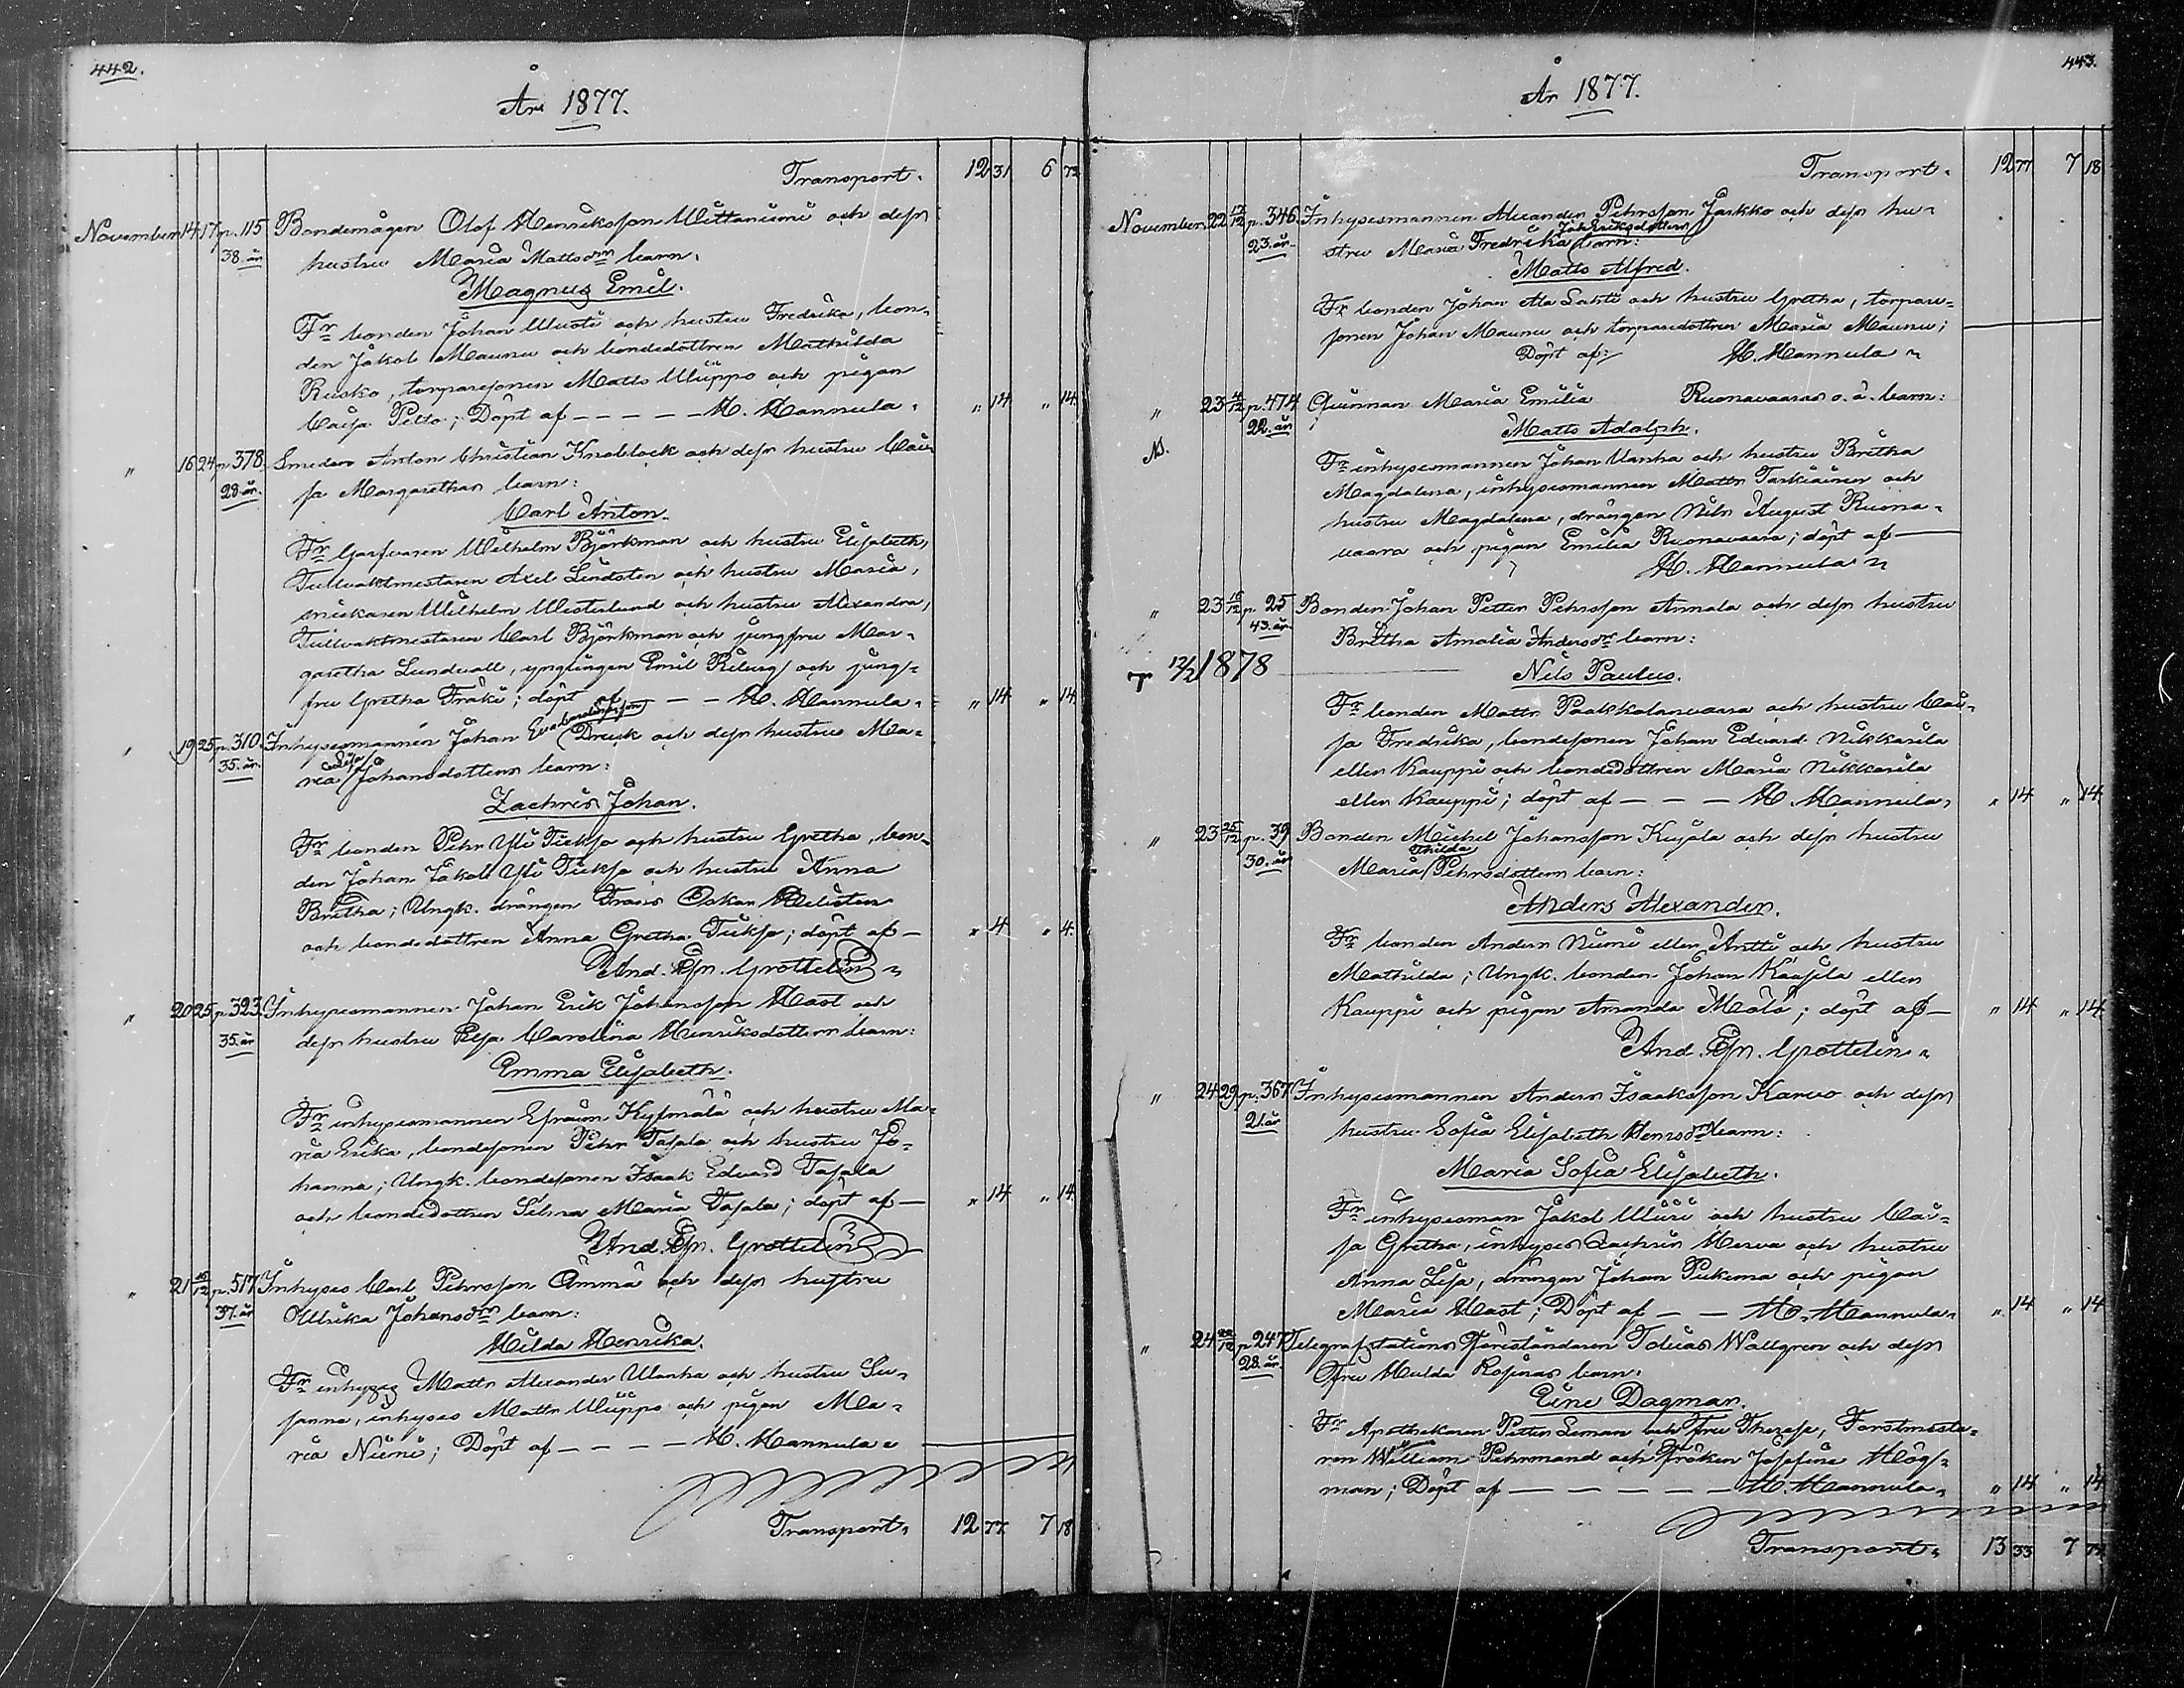 442.
År 1877.
Transport. 12 31 6 72
November 14 17 p. 115 Bondemågen Olof Henriksson Wittaniemi och dess
38. år hustru Maria Mattsdr barn.
Magnus Emil.
Fr bonden Johan Uusti och hustru Fredrika, bon-
den Jakob Maunu och bondedottren Mathilda
Rusko, torparesonen Matts Wiippo och pigan
Caisa Pelto; Döpt af — — — — H. Hannula. „ 14 „ 14
„ 16 24 p. 378. Smeden Anton Christian Knoblock och dess hustru Cai-
28. år. sa Margarethas barn:
Carl Anton.
Fr Garfvaren Wilhelm Björkman och hustru Elisabeth,
Tullvaktmestaren Axel Lindsten och hustru Maria,
snickaren Wilhelm Westerlund och hustru Alexandra,
Tullvaktmestaren Carl Björkman och jungfru Mar-
garetha Lundvall, ynglingen Emil Riberg och jung-
fru Gretha Fräki; döpt af — — H. Hannula. „ 14 „ 14
„ 19 25 p. 310. Inhysesmannen Johan Druck och dess hustru Ma-
35. år. ria Lisa Johansdotters barn:
Zachris Johan.
Fr bonden Pehr Yli Tiekso och hustru Gretha, bon-
den Johan Jakob Yli Tiekso och hustru Anna
Britha; Ungk. drängen Frans Oskar Helisten
och bondedottren Anna Gretha Tiekso; döpt af — „ 4 „ 4
And. Grottelin
„ 20 25 p. 323. Inhysesmannen Johan Erik Johansson Hast och
35. år dess hustru Resa Carolina Henriksdotters barn:
Emma Elisabeth.
Fr inhysesmannen Efraim Kylmälä och hustru Ma-
ria Erika, bondesonen Pehr Tasala och hustru Jo-
hanna; Ungk. bondesonen Isaak Eduard Tasala
och bondedottren Selma Maria Tasala; döpt af — „ 14 „ 14
And. Grottelin
„ 21 p. 517 Inhyses Carl Pehrsson Ämmä och dess hustru
37. år Ulrika Johansdr barn:
Hilda Henrika.
Fr inhyses Matts Alexander Wanha och hustru Su-
sanna, inhyses Matts Wiippo och pigan Ma-
ria Niemi; Döpt af — — — — H. Hannula
Transport. 12 77 7 18
443.
År 1877.
Transport. 12 77 7 18
November 22 p. 346. Inhysesmannen Alexander Pehrsson Jarkko och dess hu-
23. år. stru Maria Fredrika Eriksdotters barn:
Matts Alfred.
Fr bonden Johan Ala Lahti och hustru Gretha, torpare-
sonen Johan Maunu och torparedottren Maria Maunu;
Döpt af: H. Hannula
„ 23 p. 474 Qvinnan Maria Emilia Ruonavaaras o. ä. barn:
22. år Matts Adolph.
N. Fr inhysesmannen Johan Wanha och hustru Britha
Magdalena, inhysesmannen Matts Tarkiainen och
hustru Magdalena, drängen Nils August Ruona-
vaara och pigan Emilia Ruonavaara; döpt af —
H. Hannula
„ 23 p. 25 Bonden Johan Petter Pehrsson Annala och dess hustru
43. år. Britha Amalia Andersdr barn:
† 12/2 1878 Nils Paulus.
Fr bonden Matts Paakkolanvaara och hustru Cai-
sa Fredrika, bondesonen Johan Eduard Nikkarila
eller Kauppi och bondedottren Maria Nikkarila
eller Kauppi; döpt af — — — H. Hannula. „ 14 „ 14
„ 23 p. 39 Bonden Michel Johansson Kujala och dess hustru
30. år Maria Thilda Pehrsdotters barn:
Anders Alexander.
Fr bonden Anders Niemi eller Antti och hustru
Mathilda; Ungk. bonden Johan Kaasila eller
Kauppi och pigan Amanda Mälö; döpt af — „ 14 „ 14
And. Grottelin.
„ 24 29 p. 367 Inhysesmannen Anders Isaaksson Karvo och dess
21. år hustru Sofia Elisabeth Henrsdr barn:
Maria Sofia Elisabeth.
Fr inhysesman Jakob Wiiri och hustru Cai-
sa Gretha, inhyses Zachris Herva och hustru
Anna Lisa, drängen Johan Pukema och pigan
Maria Hast; Döpt af — — H. Hannula. „ 14 „ 14
„ 24 p. 247 Telegrafstations Föreståndaren Tobias Wallgren och dess
28. år. fru Hulda Rosinas barn:
Eine Dagmar.
Fr Apothekaren Petter Leman och Fru Therese, Forstmesta-
ren William Pehrmand och Fröken Josefine Hög-
man; Döpt af — — — — — H. Hannula. „ 14 „ 14
Transport. 13 33 7 74